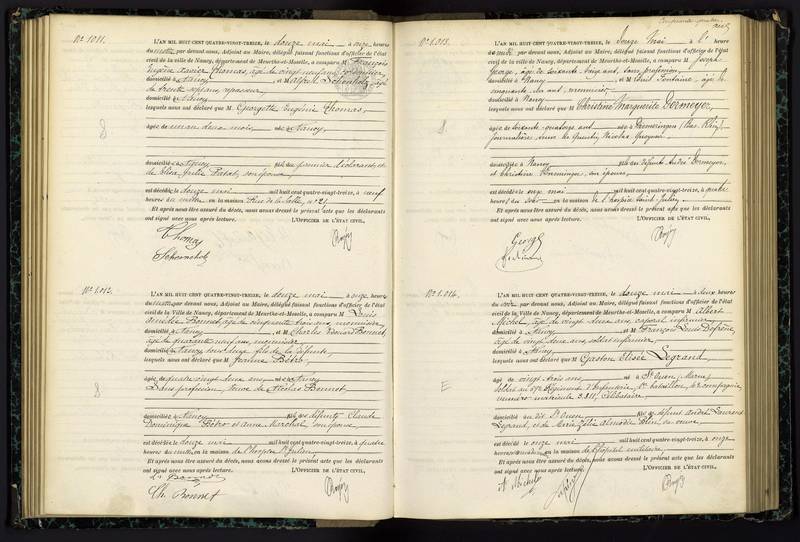 N° 1011.
L'AN MIL HUIT CENT QUATRE-VINGT-TREIZE, le douze mai à onze heures
du matin par devant nous, Adjoint au Maire, délégué faisant fonctions d'officier de l'état
civil de la ville de Nancy, département de Meurthe-et-Moselle, a comparu M François
Eugène Xavier Thomas, âgé de vingt neuf ans,
domicilié à Nancy et M Alfred Schoenholz, âgé
de trente
domicilié à Nancy
lesquels nous ont déclaré que M. Georgette Eugénie Thomas,
âgée de un an deux mois, né à Nancy,
domicilié à Nancy, fille du premier déclarant et
de Elisa Julie son épouse,
est décédé le douze mai mil huit cent quatre-vingt-treize, à neuf
heures du matin en la maison Rue de la n° 21
Et après nous être assuré du décès, nous avons dressé le présent acte que les déclarants
ont signé avec nous après lecture. L'OFFICIER DE L'ÉTAT CIVIL,
Thomas
Schoenholz
N° 1.012.
L'AN MIL HUIT CENT QUATRE-VINGT-TREIZE, le douze mai à onze heures
du matin par devant nous, Adjoint au Maire, délégué faisant fonctions d'officier de l'état
civil de la Ville de Nancy, département de Meurthe-et-Moselle, a comparu M Louis
Bonnet, âgé de cinquante trois ans, menuisier,
domicilié à Nancy et M Charles Edouard Bonnet,
âgé de quarante neuf ans, menuisier
domicilié à Nancy tous deux fils de la défunte,
lesquels nous ont déclaré que M Jeanne Bétro,
âgée de quatre vingt deux ans, née à Nancy
Sans profession, veuve de Nicolas Bonnet
domicilié à Nancy fille des défunts Claude
Dominique Bétro et Anne Marchal son épouse,
est décédé le douze mai mil huit cent quatre-vingt-treize, à quatre
heures du matin en la maison de l'hospice St Julien
Et après nous être assuré du décès, nous avons dressé le présent acte que les déclarants
ont signé avec nous après lecture. L'OFFICIER DE L'ÉTAT CIVIL,
Ch. Bonnet
N° 1.013.
L'AN MIL HUIT CENT QUATRE-VINGT-TREIZE, le douze Mai à 
du par devant nous, Adjoint au Maire, délégué faisant fonctions d'officier de l'état
civil de la ville de Nancy, département de Meurthe-et-Moselle, a comparu M Joseph
George, âgé de soixante treize ans, sans profession,
domicilié à Nancy et M Louis Fontaine, âgé de
cinquante un ans, menuisier
domicilié à Nancy
lesquels nous ont déclaré que M Christine Marguerite Dermeyer,
âgée de soixante-quatorze ans née à (Bas-Rhin),
journalière, veuve de Quentin Nicolas
domiciliée à Nancy fille des défunts André Dermeyer,
et Christine son épouse,
est décédé le onze mai mil huit cent quatre-vingt-treize, à quatre
heures du soir en la maison de l'hospice Saint-Julien,
Et après nous être assuré du décès, nous avons dressé le présent acte que les déclarants
ont signé avec nous après lecture. L'OFFICIER DE L'ÉTAT CIVIL,
George
N° 1.014.
E
L'AN MIL HUIT CENT QUATRE-VINGT-TREIZE, le douze mai à deux heures
du soir par devant nous, Adjoint au Maire, délégué faisant fonctions d'officier de l'état
civil de la Ville de Nancy, département de Meurthe-et-Moselle, a comparu M Albert
Michel, âgé de vingt deux ans, caporal infirmier,
domicilié à Nancy et M François Louis
âgé de vingt deux ans, soldat infirmier,
domicilié à Nancy
lesquels nous ont déclaré que M Gaston Elisé Legrand,
âgé de vingt trois ans né à St Ouen (Marne)
soldat au Régiment d'Infanterie, bataillon, compagnie
numéro matricule célibataire,
domicilié au dit St Ouen fils du défunt André Laurent
Legrand, et de Marie Zélie sa veuve
est décédé le onze mai mil huit cent quatre-vingt-treize, à onze
heures en la maison de l'hôpital militaire,
Et après nous être assuré du décès, nous avons dressé le présent acte que les déclarants
ont signé avec nous après lecture. L'OFFICIER DE L'ÉTAT CIVIL,
A. Michel